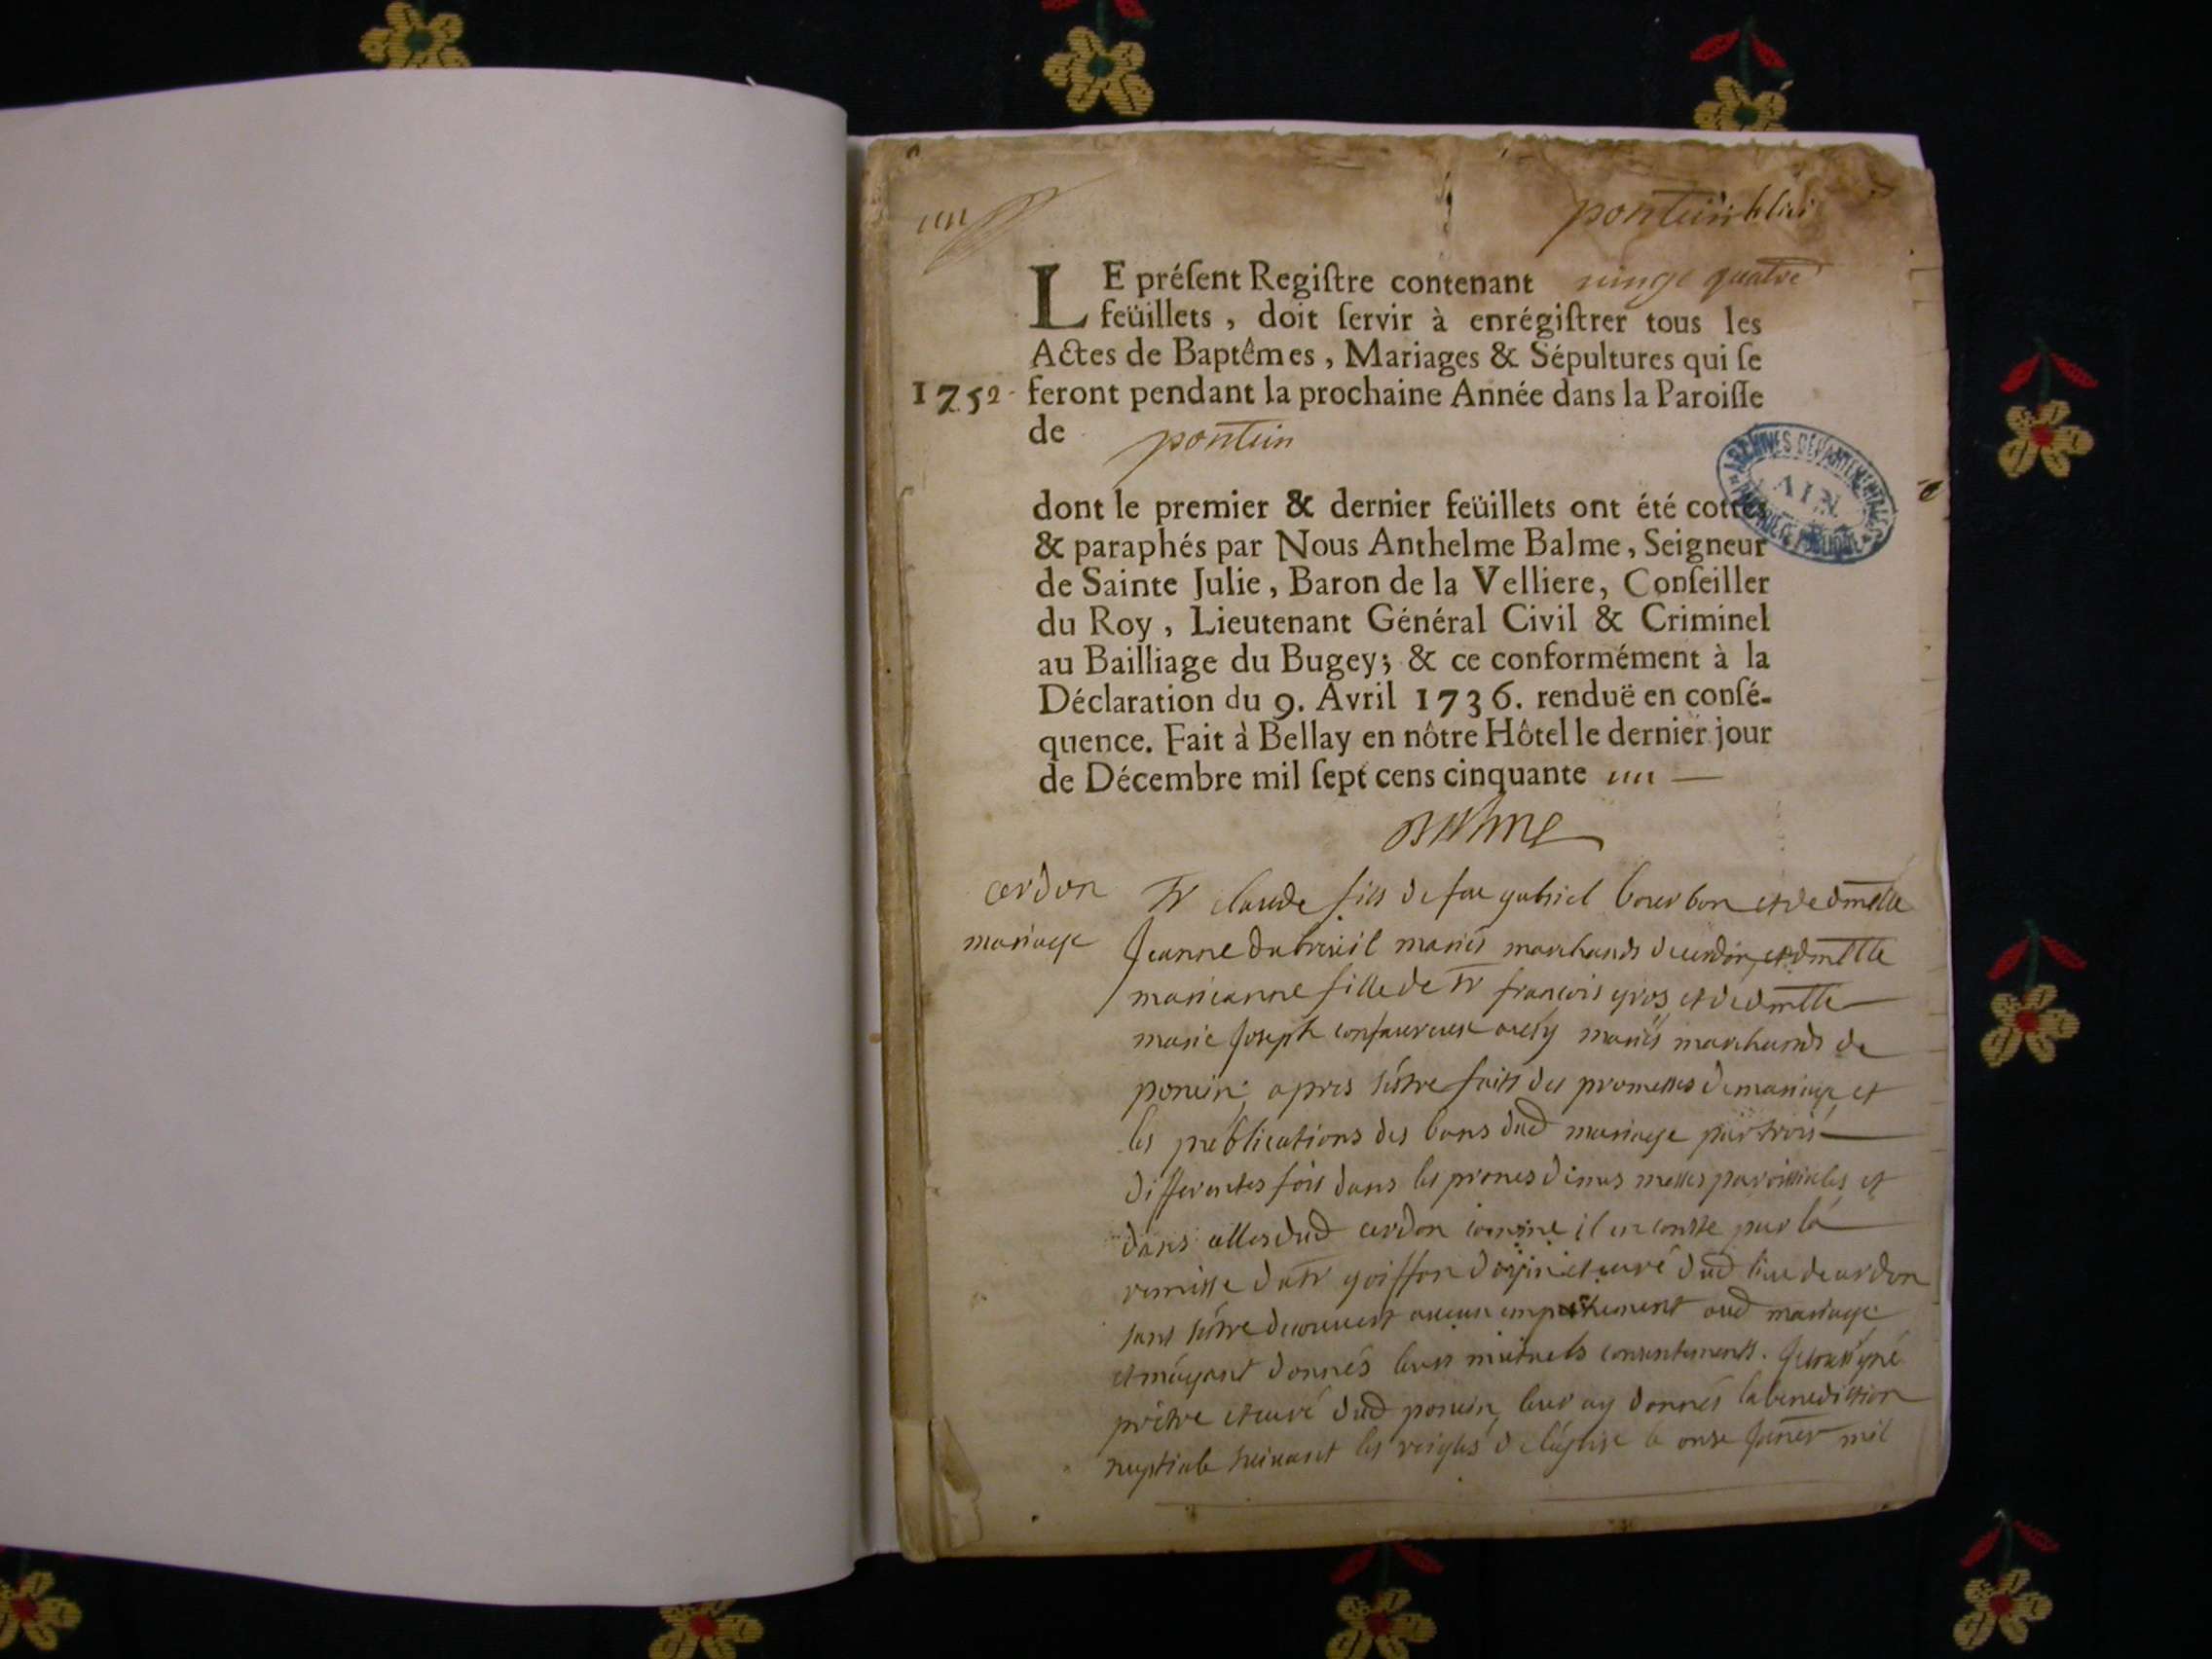 un
pontein
LE préſent Regiſtre contenant vingt quatre
feüillets, doit ſervir à enrégiſtrer tous les
Actes de Baptêmes, Mariages & Sépultures qui ſe
1752 feront pendant la prochaine Année dans la Paroiſſe
de pontein
ARCHIVES DEPARTEMENTALES
AIN
dont le premier & dernier feüillets ont été cottés
& paraphés par Nous Anthelme Balme, Seigneur
de Sainte Julie, Baron de la Velliere, Conſeiller
du Roy, Lieutenant Général Civil & Criminel
au Bailliage du Bugey; & ce conformément à la
Déclaration du 9. Avril 1736. renduë en conſé-
quence. Fait à Bellay en nôtre Hôtel le dernier jour
de Décembre mil ſept cens cinquante un
Balme
cerdon
mariage
Sr claude fils de feu gabriel bourbon et de dmelle
Jeanne dubreuil mariés marchands de cerdon, et dmelle
marieanne fille de Sr francois gros et de dmelle
marie Joseph mariés marchands de
poncin, apres s'être faits des promesses de mariage et
les publications des bans dud mariage par trois
differentes fois dans les prones de nos messes paroissiales et
dans celles dud cerdon comme il en conste par la
remisse du Sr goiffon curé dud lieu de cerdon
sans s'être decouvert aucun empechement aud mariage
et m'ayant donnés leurs mutuels consentements. Je soussigné
prêtre et curé dud poncin, leur ay donnés la benediction
nuptiale suivant les reigles de l'église le onze Janer mil